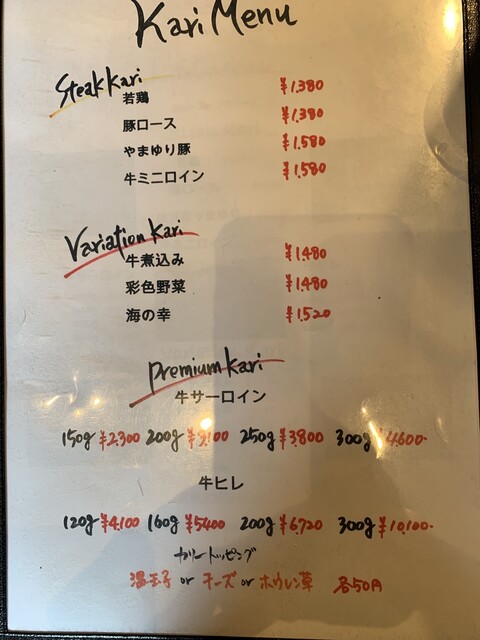 Kari Menu
Steak Kari
若鶏 ¥1.380
豚ロース ¥1.380
やまゆり豚 ¥1.580
牛ミニロイン ¥1.580
Variation Kari
牛煮込み ¥1.480
彩色野菜 ¥1.480
海の幸 ¥1.520
Premium Kari
牛サーロイン
150g ¥2.300 200g 250g ¥3.800 300g ¥4.600-
牛ヒレ
120g ¥4.100 160g ¥5400 200g ¥6.720 300g ¥10,100-
カリートッピング
温玉子 or チーズ or ホウレン草 各50円